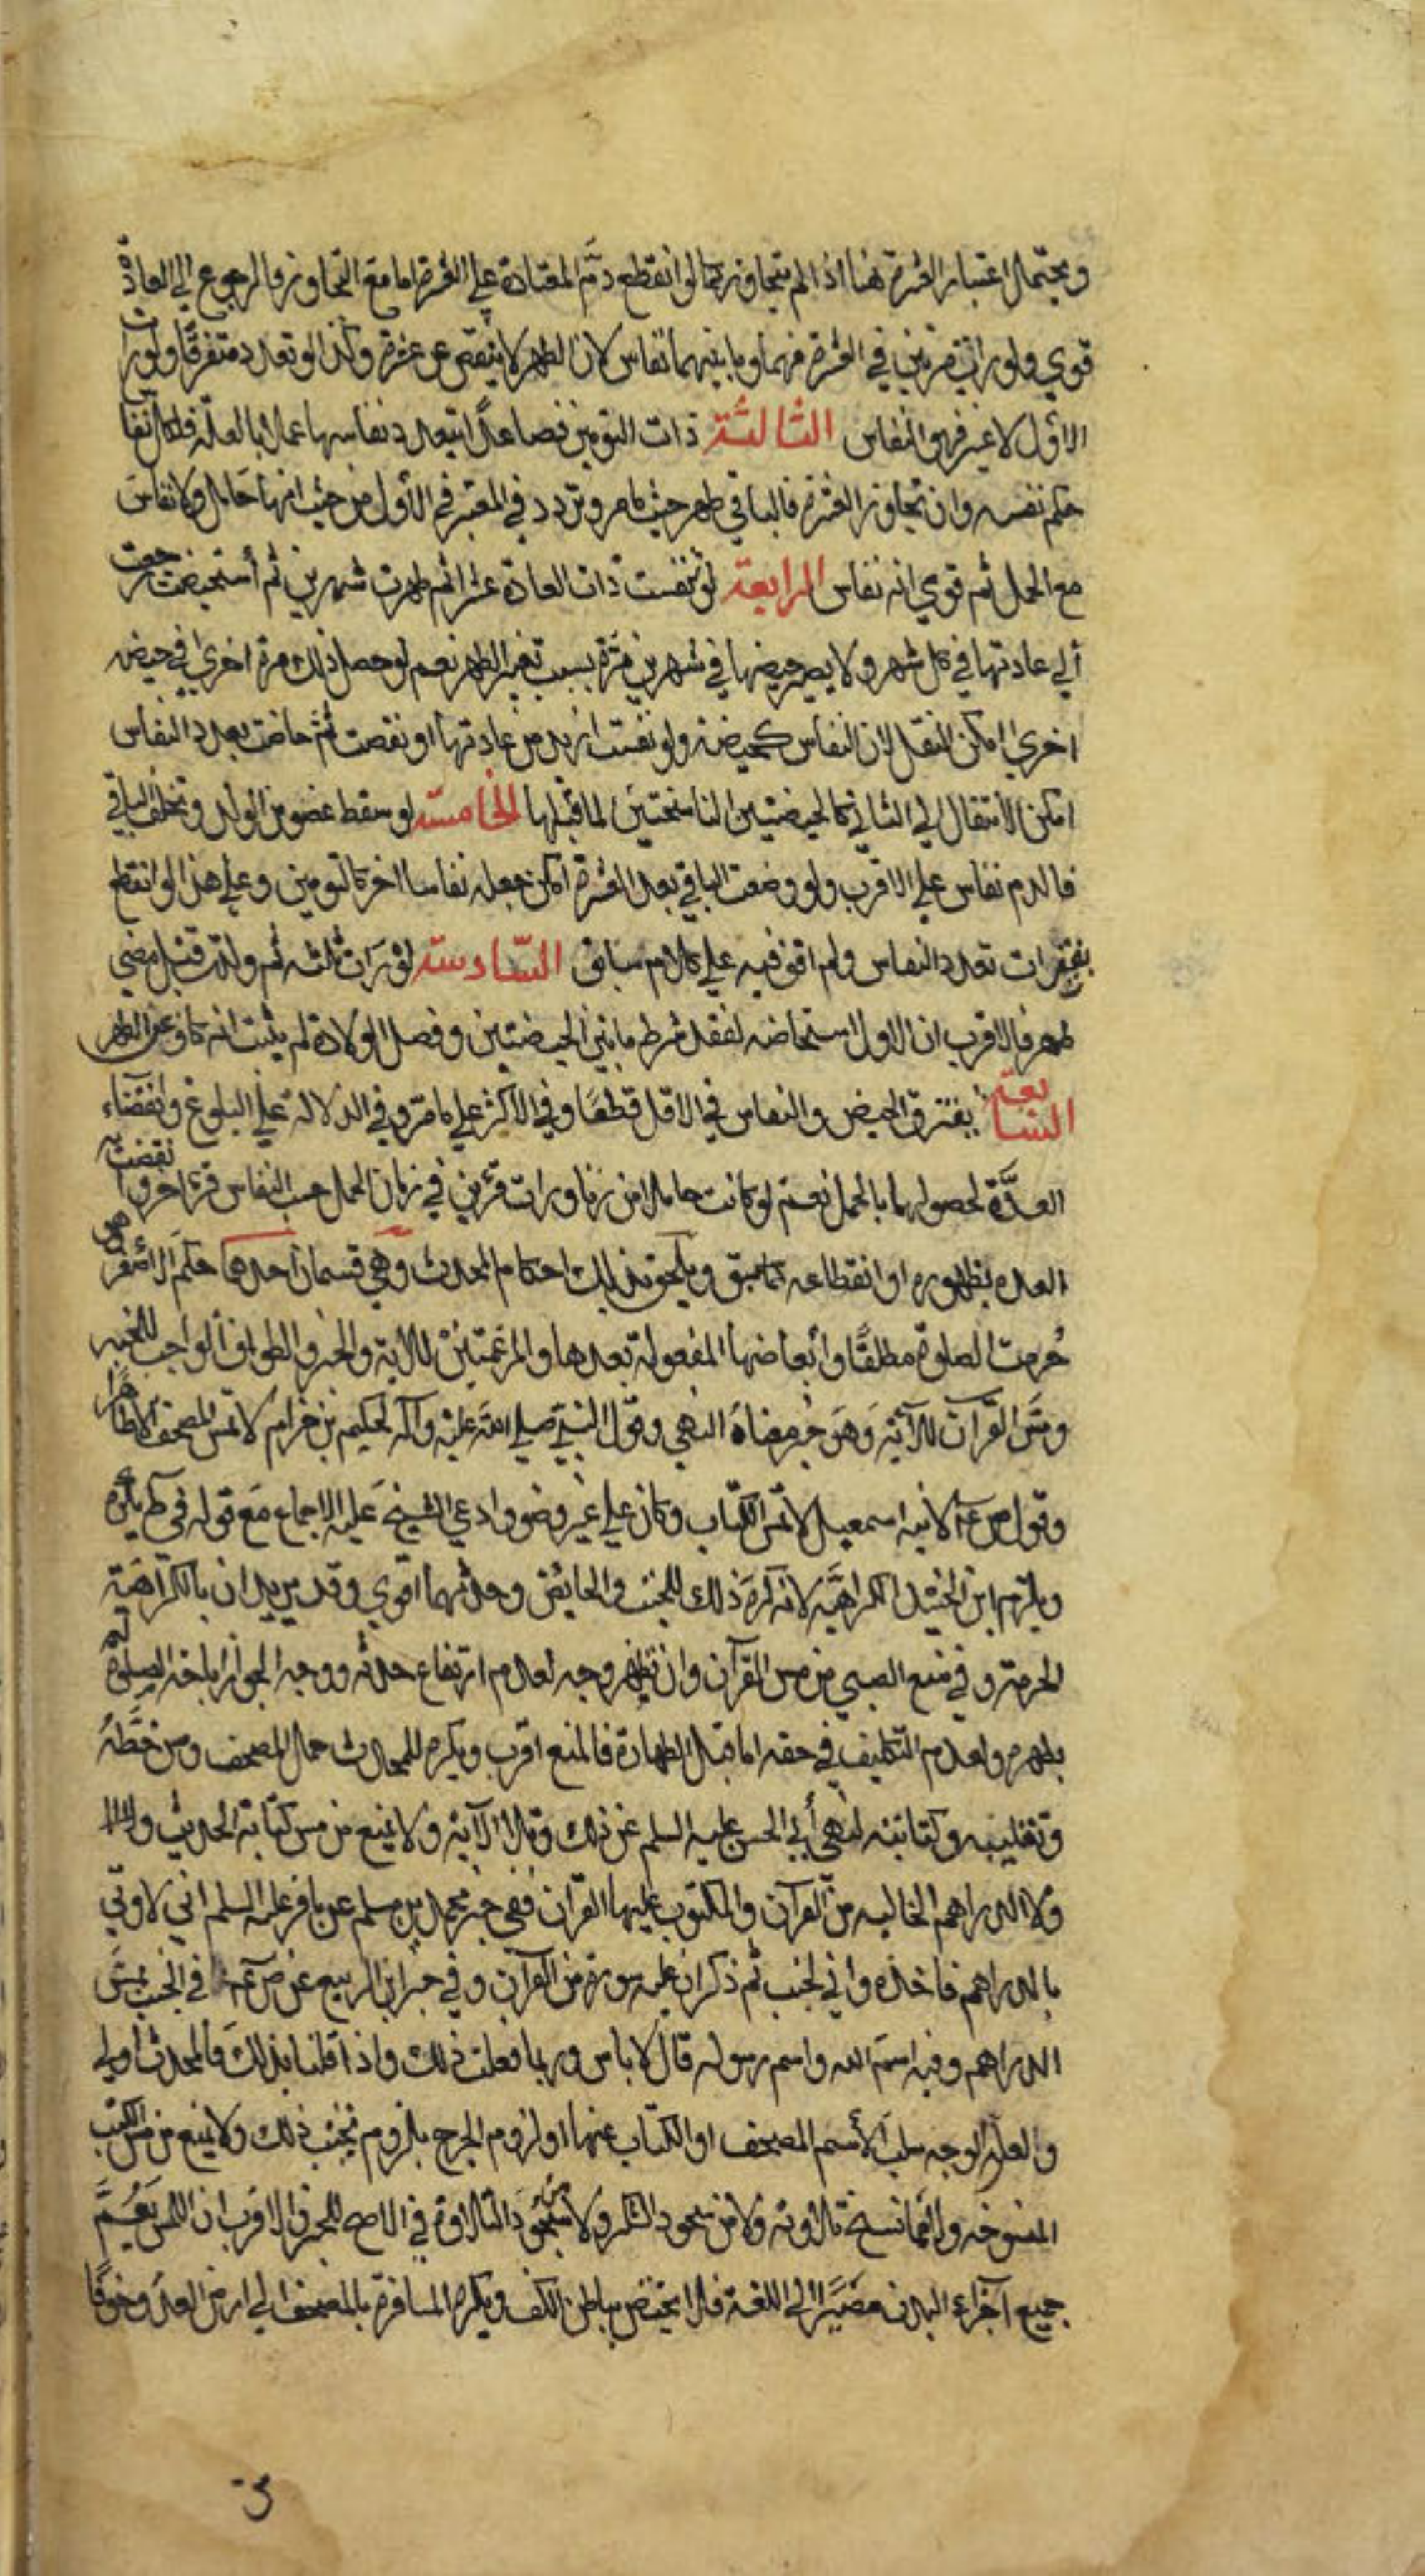 ويحتمل اعتبار العشرة هنا اذا لم يتجاوز كما لو انقطع دم المعتادة على العشرة اما مع التجاوز فالرجوع الى العادة
قوي ولو رات مرتين في العشرة فهما وما بينهما نفاس لان الطهر لا ينقص عن عشرة وكذا لو تعدد متفرقا ولو رات
الاول لا غير فهو النفاس الثالثة ذات التومين فصاعدا يتعدد نفاسها عملا بالعلة فلكل نفاس
حكم نفسه وان تجاوز العشرة فالباقي طهر حيث مامر وتردد في المعتبر في الاول من حيث انها حامل ولا نفاس
مع الحمل ثم قوي انه نفاس الرابعة لو تنفست ذات العادة عشرا ثم طهرت شهرين ثم استحيضت رجعت
الى عادتها في كل شهر ولا يصير حيضها في شهرين مرة بسبب تغير الطهر نعم لو حصل ذلك مرة اخرى في حيض
اخرى امكن النقل لان النفاس كحيضة ولو نفست ازيد من عادتها او نقصت ثم حاضت بعدد النفاس
امكن الانتقال الى الثاني كالحيضتين الناسختين لما قبلها الخامسة لو سقط عضو من الولد وتخلف الباقي
فالدم نفاس على الاقرب ولو وضعت الباقي بعد العشرة امكن جعله نفاسا اخر كالتومين وعلى هذا لو انقطع
بفترات تعدد النفاس ولم اقف فيه على كلام سابق السادسة لو رات ثلثه ثم ولدت قبل مضي
طهر فالاقرب ان الاول استحاضه لفقد شرط ما بين الحيضتين وفصل الولادة لم يثبت انه كاف عن الطهر
السابعة يفترق الحيض والنفاس في الاقل قطعا وفي الاكثر على ما مر وفي الدلالة على البلوغ وانقضاء
العدة لحصولهما بالحمل نعم لو كانت حاملا من زنا ورات قرئين في زمان الحمل حسب النفاس قرءا اخر وانقضت به
العدة بظهوره او انقطاعه كما سبق ويلحق بذلك احكام المحدث وهي قسمان احدهما حكم الاصغر
حرمت الصلوة مطلقا وابعاضها المفعولة بعدها والمرغمتين للاية والخبر والطواف الواجب للخبر
ومس القرآن للآية وهو خبر معناه النهي وقول النبي صلى الله عليه وآله لحكيم بن حزام لا تمس المصحف الا طاهرا
وقول ص ع لابنه اسمعيل لا تمس الكتاب وكان على غير وضوء وادعى الشيخ عليه الاجماع مع قوله في ط يكره
ويلزم ابن الجنيد الكراهية لانه كره ذلك للجنب والحايض وحدثهما اقوى وقد يريدان بالكراهة
الحرمة وفي منع الصبي من مس القرآن وان تطهر وجه لعدم ارتفاع حدثه ووجه الجواز اباحة الصلوة له
بطهره ولعدم التكليف في حقه اما قبل الطهارة فالمنع اقرب ويكره للمحدث حمل المصحف ومس خطه
وتقليبه وكتابته لنهي ابي الحسن عليه السلم عن ذلك وتلا الآية ولا يمنع من مس كتابة الحديث
ولا الدراهم الخاليه من القرآن والمكتوب عليها القرآن ففي خبر محمد بن مسلم عن باقر عليه السلم اني لاوتي
بالدراهم فاخذه واني لجنب ثم ذكر ان عليه سورة من القرآن وفي خبر ابي الربيع عن ص ع في الجنب يمس
الدراهم وفيه اسم الله واسم رسوله قال لا باس وربما فعلت ذلك واذا قلنا بذلك فالمحدث اولى
والعلة الوجه سلب الاسم المصحف او الكتاب عنهما او لزوم الحرج بلزوم تجنب ذلك ولا يمنع من مس الكتب
المنسوخه ولا مما نسخ تلاوته ولا من سجود الشكر ولا من سجود التلاوة في الاصح للخبر والاقرب ان اللمس يعم
جميع اجزاء البدن مصيرا الى اللغة فلا يختص بباطن الكف ويكره المسافرة بالمصحف الى ارض العدو خوفا